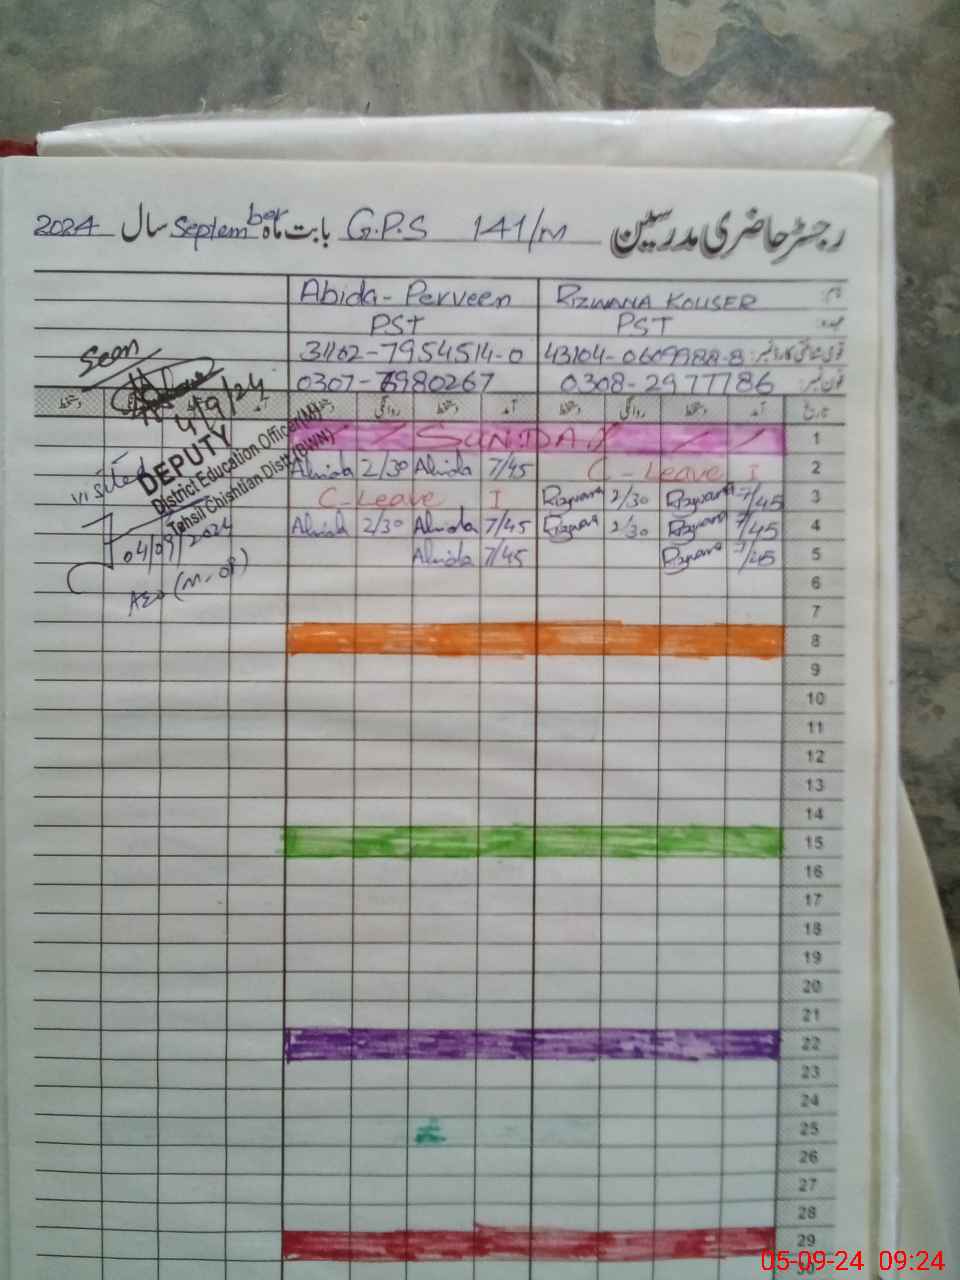 رجسٹر حاضری مدرسین G.P.S 141/M بابت ماہ September سال 2024
نام RIZWANA KOUSER Abida-Perveen
عہدہ PST PST
قومی شناختی کارڈ نمبر: 43104-0609988-8 31102-7954514-0
فون نمبر: 0308-2977786 0307-6980267
تاریخ آمد دستخط روانگی دستخط آمد دستخط روانگی دستخط آمد
1 SUNDAY
2 C-Leave I 7/45 Abida 2/30 Abida
3 7/45 Rizwana 2/30 Rizwana C-Leave I
4 7/45 Rizwana 2/30 Rizwana 7/45 Abida 2/30 Abida
5 7/45 Rizwana 7/45 Abida
6
7
8
9
10
11
12
13
14
15
16
17
18
19
20
21
22
23
24
25
26
27
28
29
30
Seen
4/9/24
DEPUTY
District Education Officer(M)
Tehsil Chishtian Distt (BWN)
visited
04/09/2024
AEO (M-
05-09-24 09:24